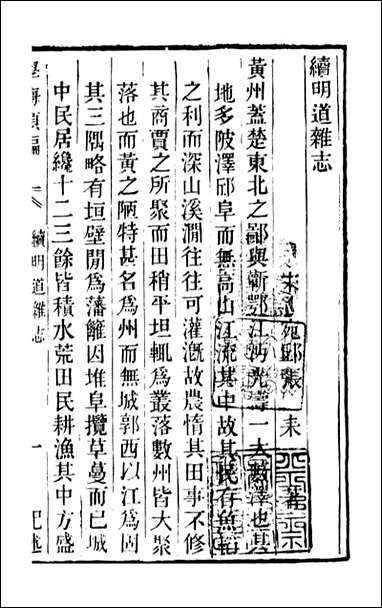 續明道雜志
宋 宛邱張 耒 著
黃州蓋楚東北之鄙與蘄鄂江沔光壽一大藪澤也其
地多陂澤邱阜而無高山江流其中故其民有魚稻
之利而深山溪澗往往可灌漑故農惰其田事不修
其商賈之所聚而田稍平坦輒爲叢落數州皆大聚
落也而黃之陋特甚名爲州而無城郭西以江爲固
其三隅略有垣壁閒爲藩籬因堆阜攬草蔓而已城
中民居纔十二三餘皆積水荒田民耕漁其中方盛
學海類編 續明道雜志 一 記述